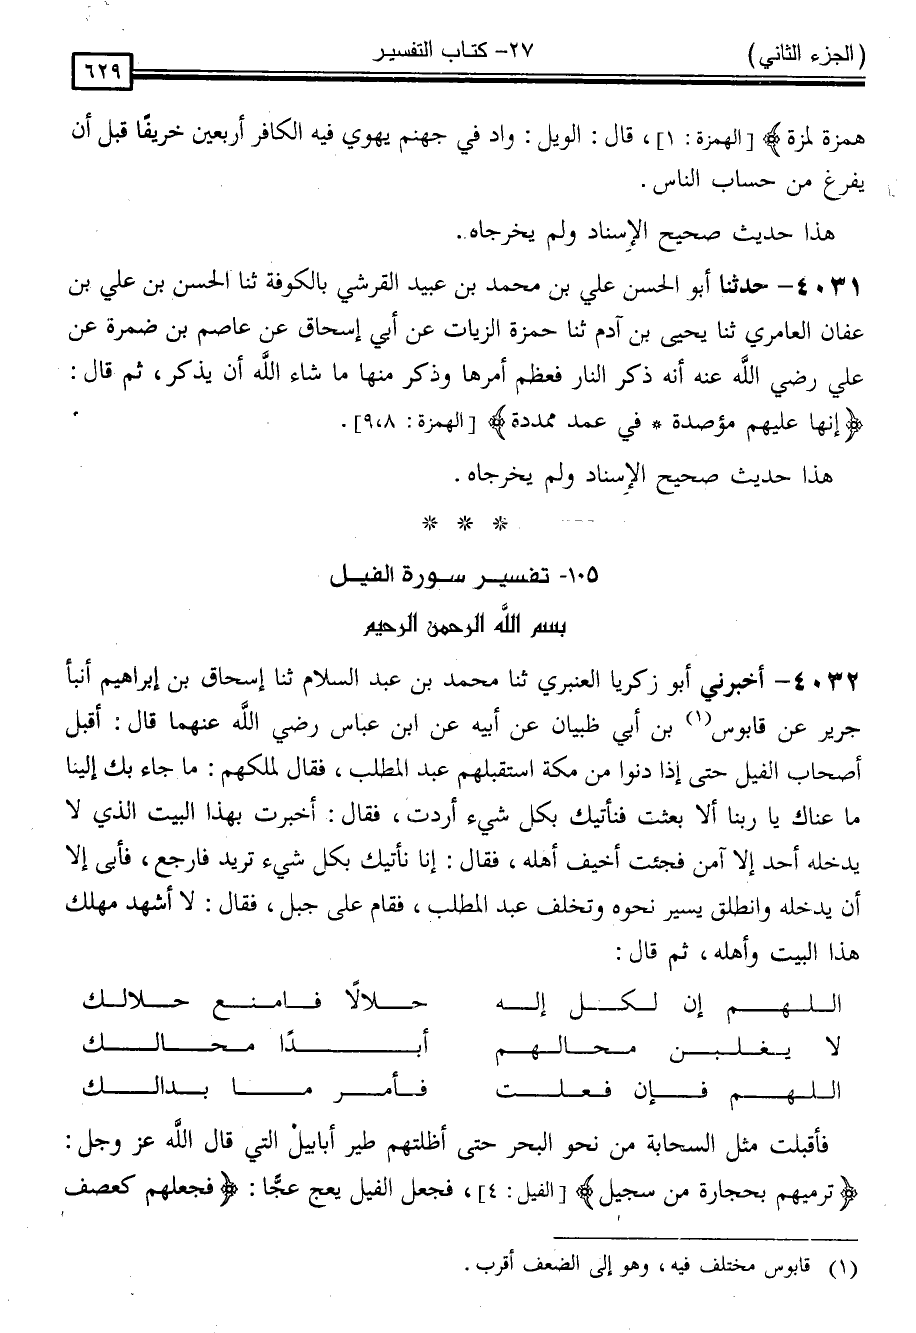 (الجزء الثاني) ٢٧- كتاب التفسير ٦٢٩
همزة لمزة﴾ [الهمزة: ١]، قال: الويل: واد في جهنم يهوي فيه الكافر أربعين خريفًا قبل أن
يفرغ من حساب الناس.
هذا حديث صحيح الإسناد ولم يخرجاه.
٤٠٣١- حدثنا أبو الحسن علي بن محمد بن عبيد القرشي بالكوفة ثنا الحسن بن علي بن
عفان العامري ثنا يحيى بن آدم ثنا حمزة الزيات عن أبي إسحاق عن عاصم بن ضمرة عن
علي رضي اللَّه عنه أنه ذكر النار فعظم أمرها وذكر منها ما شاء اللَّه أن يذكر، ثم قال:
﴿إنها عليهم مؤصدة * في عمد ممددة﴾ [الهمزة: ٩،٨].
هذا حديث صحيح الإسناد ولم يخرجاه.
* * *
١٠٥- تفسير سورة الفيل
بسم اللَّه الرحمن الرحيم
٤٠٣٢- أخبرني أبو زكريا العنبري ثنا محمد بن عبد السلام ثنا إسحاق بن إبراهيم أنبأ
جرير عن قابوس(١) بن أبي ظبيان عن أبيه عن ابن عباس رضي اللَّه عنهما قال: أقبل
أصحاب الفيل حتى إذا دنوا من مكة استقبلهم عبد المطلب، فقال لملكهم: ما جاء بك إلينا
ما عناك يا ربنا ألا بعثت فنأتيك بكل شيء أردت، فقال: أخبرت بهذا البيت الذي لا
يدخله أحد إلا آمن فجئت أخيف أهله، فقال: إنا نأتيك بكل شيء تريد فارجع، فأبى إلا
أن يدخله وانطلق يسير نحوه وتخلف عبد المطلب، فقام على جبل، فقال: لا أشهد مهلك
هذا البيت وأهله، ثم قال:
اللهم إن لكل إله حلالًا فامنع حلالك
لا يغلبن محالهم أبدًا محالك
اللهم فإن فعلت فأمر ما بدالك
فأقبلت مثل السحابة من نحو البحر حتى أظلتهم طير أبابيلْ التي قال اللَّه عز وجل:
﴿ترميهم بحجارة من سجيل﴾ [الفيل: ٤]، فجعل الفيل يعج عجًّا: ﴿فجعلهم كعصف
(١) قابوس مختلف فيه، وهو إلى الضعف أقرب.